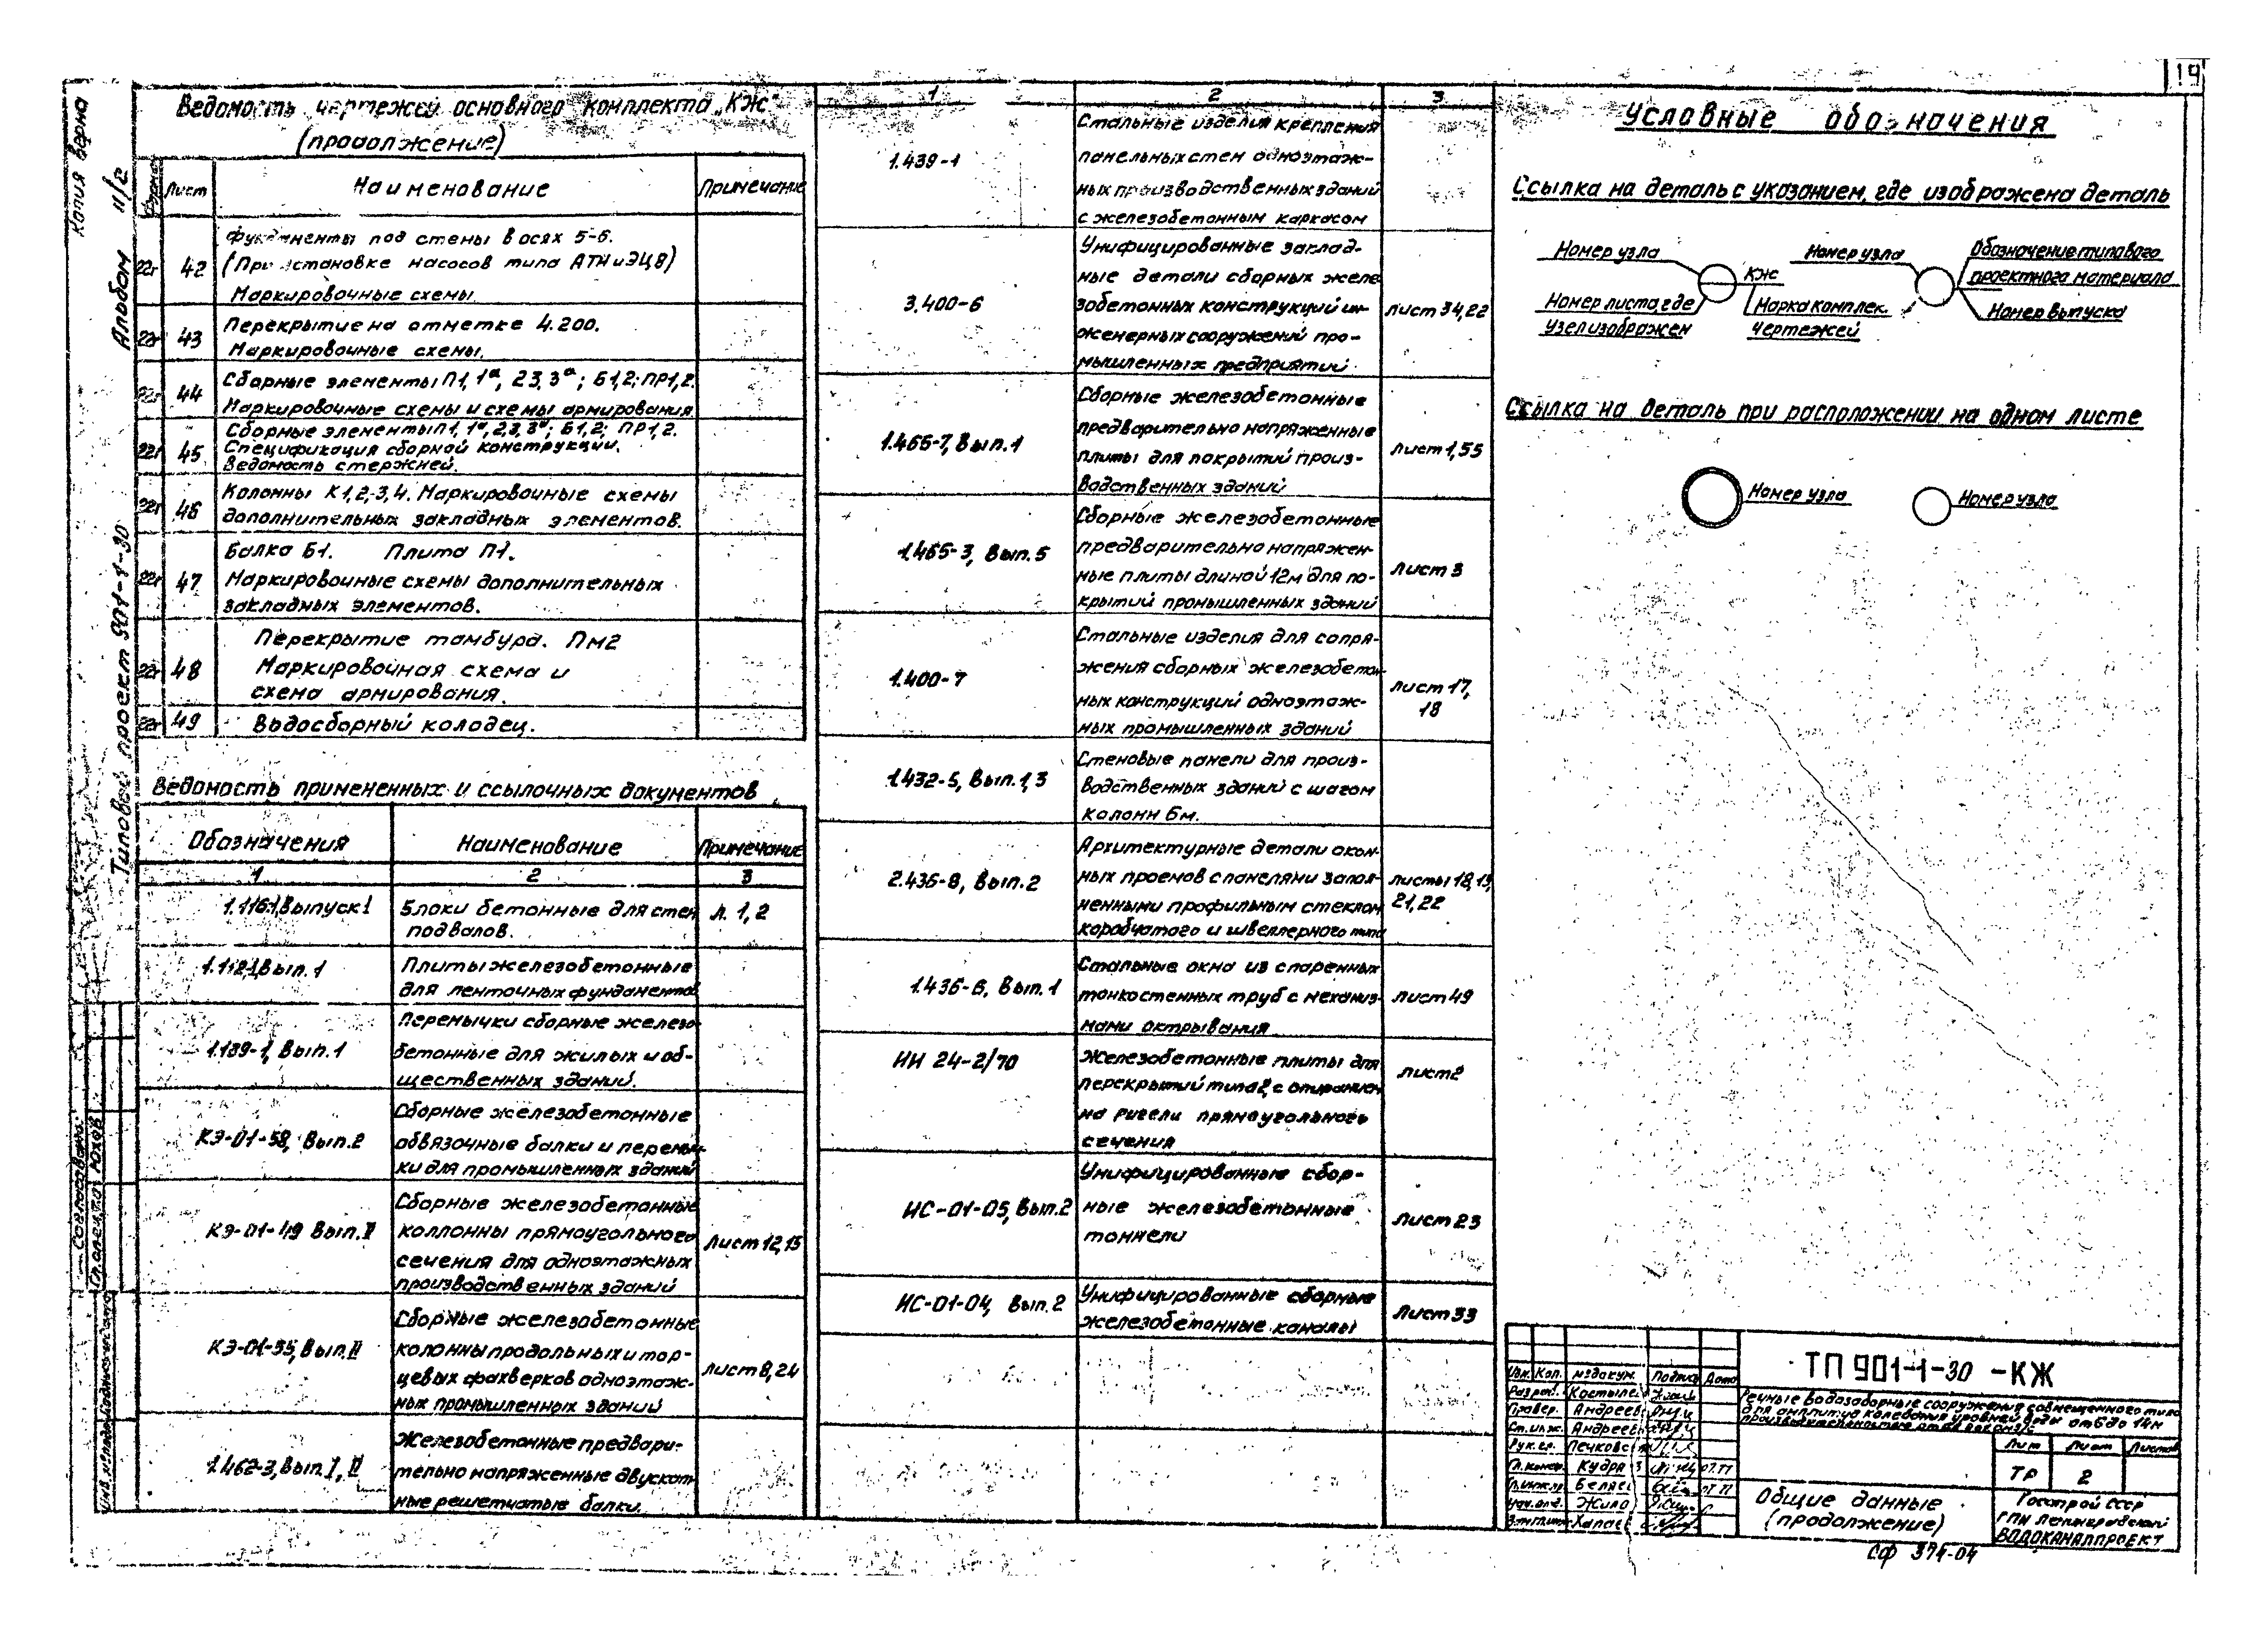 19
Копия верна
Альбом II/2
Типовой проект 901-1-30
Ведомость чертежей основного комплекта „КЖ"
(продолжение)
Формат Лист Наименование Примечание
22г 42 Фундаменты под стены в осях 5-6.
(При установке насосов типа АТН и ЭЦВ)
Маркировочные схемы.
22г 43 Перекрытие на отметке 4.200.
Маркировочные схемы.
22г 44 Сборные элементы П1, 1ª, 2 3, 3ª; Б1,2; ПР1,2.
Маркировочные схемы и схемы армирования
22г 45 Сборные элементы П1, 1ª, 2,3, 3ª; Б1,2; ПР1,2.
Спецификация сборной конструкции.
Ведомость стержней.
22г 46 Колонны К1,2,3,4. Маркировочные схемы
дополнительных закладных элементов.
22г 47 Балка Б1. Плита П1.
Маркировочные схемы дополнительных
закладных элементов.
22г 48 Перекрытие тамбура. Пм2
Маркировочная схема и
схема армирования.
22г 49 Водосборный колодец.
Ведомость примененных и ссылочных документов
Обозначения Наименование Примечание
1 2 3
1.116-1, Выпуск 1 Блоки бетонные для стен л. 1, 2
подвалов.
Вып. 1 Плиты железобетонные
для ленточных фундаментов
1.139-1, Вып. 1 Перемычки сборные железо-
бетонные для жилых и об-
щественных зданий.
КЭ-01-58, Вып. 2 Сборные железобетонные
обвязочные балки и перемыч-
ки для промышленных зданий
КЭ-01-49 Вып. II Сборные железобетонные
коллонны прямоугольного Лист 12,15
сечения для одноэтажных
производственных зданий
КЭ-01-55, Вып. II Сборные железобетонные
колонны продольных и тор- лист 8, 24
цевых фахверков одноэтаж-
ных промышленных зданий
1.462-3, Вып. I, II Железобетонные предвари-
тельно напряженные двускат-
ные решетчатые балки.
1 2 3
1.439-1 Стальные изделия крепления
панельных стен одноэтаж-
ных производственных зданий
с железобетонным каркасом
3.400-6 Унифицированные заклад-
ные детали сборных желе
зобетонных конструкций ин- лист 34,22
женерных сооружений про-
мышленных предприятий
1.465-7, Вып. 1 Сборные железобетонные
предварительно напряженные лист 1,55
плиты для покрытий произ-
водственных зданий
1.465-3, Вып. 5 Сборные железобетонные
предварительно напряжен- лист 3
ные плиты длиной 12м для по-
крытий промышленных зданий
1.400-7 Стальные изделия для сопря-
жения сборных железобетон лист 17,
ных конструкций одноэтаж- 18
ных промышленных зданий
1.432-5, Вып. 1,3 Стеновые панели для произ-
водственных зданий с шагом
колонн 6м.
2.436-8, Вып. 2 Архитектурные детали окон-
ных проемов с панелями запол- листы 18, 19,
ненными профильным стеклом 21,22
коробчатого и швеллерного типа
1.436-6, Вып. 1 Стальные окна из спаренных
тонкостенных труб с механиз- лист 49
мами октрывания
ИИ 24-2/70 Железобетонные плиты для
перекрытий типа 2, с опиранием лист 2
на ригели прямоугольного
сечения
ИС-01-05, Вып. 2 Унифицированные сбор-
ные железобетонные лист 23
тоннели
ИС-01-04, Вып. 2 Унифицированные сборные
железобетонные каналы Лист 33
Условные обозначения
Ссылка на деталь с указанием, где изображена деталь
Номер узла
КЖ
Номер листа, где
узел изображен
Марка комплек.
чертежей
Номер узла
Обозначение типового
проектного материала
Номер выпуска
Ссылка на деталь при расположении на одном листе
Номер узла
Номер узла
Согласовано:
Изм. Кол. №докум. Подпись Дата
Разраб.
Провер. Андреев
Ст. инж. Андреев
Рук. гр.
Гл. констр. Кудря
Гл. инж. пр.
Нач. отд. Жило
ТП 901-1-30 -КЖ
Речные водозаборные сооружения совмещенного типа
для амплитуд колебания уровней воды от 6 до 14м
производительностью
Лит Лист Листов
ТР 2
Общие данные
(продолжение)
Госстрой СССР
ГПИ Ленинградский
ВОДОКАНАЛПРОЕКТ
СФ 374-04